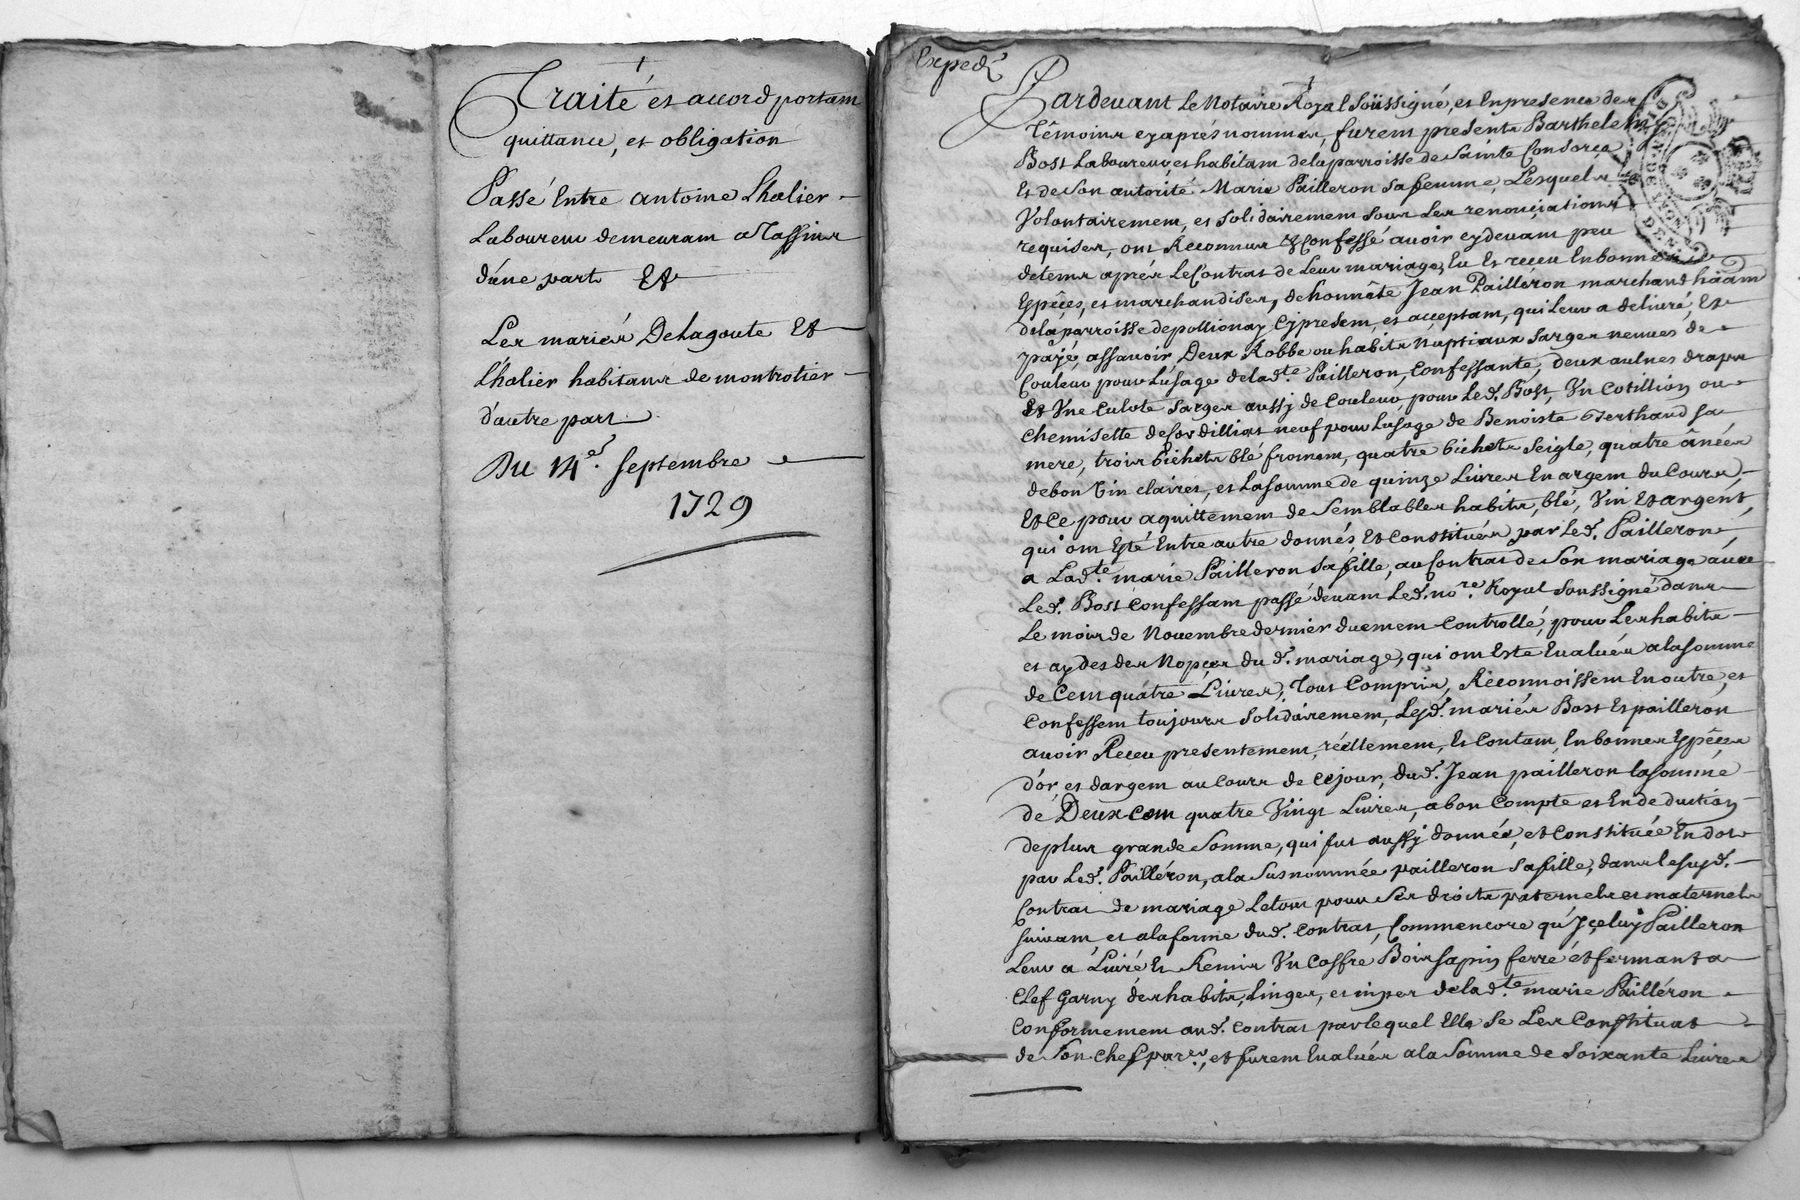 Traité et accord portam
quittance, et obligation
Passé Entre antoine Lhalier
Laboureur demeuram a Tassins
d'une part Et
Les mariés Delagoute Et
Lhalier habitans de montrotier
d'autre part
Du 14e. septembre
1729
Exped.
Pardevant Le Notaire Royal Soüssigné, et Enpresence des
Témoins cyaprés nommés, furem presents Barthelemy
Bost Laboureur et habitam delaparroisse de Sainte Consorce
Et de Son autorité Marie Pailleron Safemme, Lesquels
Volontairemem, et Solidairemem Sous Les renonciations
requises, ont Reconnus & Confessé avoir cydevam peu
detems aprés LeContrat de Leur mariage, Eu Et receu Enbonnes
Espéces, et marchandises, dehonnéte Jean Pailléron marchand häam
delaparroisse depollionay Cypresem, et acceptam, qui Leur a delivré, Et
payé, assavoir Deux Robbe ou habits Nuptiaux Sarges neuves de
Couleur pour L'usage delad.te Pailleron, Confessante, deux aulnes drap
Et Vne Culote Sarges aussy de Couleur pour Led. Bost, Vn Cotillion ou
Chemisette de Cordillias neuf pour L'usage de Benoiste Berthaud sa
mere, trois bichets blé fromem, quatre bichets Seigle, quatre ânées
debon Vin Claires, et LaSomme de quinze Livres En argem du Cours,
Et Ce pour aquittemem de Semblables habits, blé, Vin Et argent,
qui om Eté Entre autre donnés Et Constitués par Led. Pailleron
a Lad.te marie Pailleron Safille, au Contrat de Son mariage avec
Led. Bost Confessam passé devam Led. no.re Royal Soussigné dans
Le mois de Novembre dernier duemem Controllé, pour Les habits
et aydes des Nopces du d. mariage, qui om Esté Evalués alaSomme
de Cem quatre Livres, Tout Compris, Reconnoissem En outre, et
Confessem toujours Solidairemem, Lesd. mariés Bost Et pailleron
avoir Receu presentemem, réellemem, Et Contam, En bonnes Espéces
d'or, et dargem au Cours de Cejour, dud. Jean pailleron laSomme
de Deux Cem quatre Vingt Livres, a bon Compte et En deduction
deplus grande Somme, qui fut aussy donnée, et Constituée En dot
par Led. Pailléron, ala Susnommée pailleron Safille, dans lesusd.
Contrat de mariage Letout pour Ses droits paternels et maternels
suivam, et alaforme dud. Contrat, Comme encore qu'Jceluy Pailleron
Leur a Livré Et Remis Vn Coffre Bois sapin ferré et fermant a
Clef Garny deshabits, Linges, et nipes delad.te marie Pailléron
Conformemem aud. Contrat parlequel Elle Se Les Constituat
de Son Chef par.er, et furem Evalués ala Somme de Soixante Livres